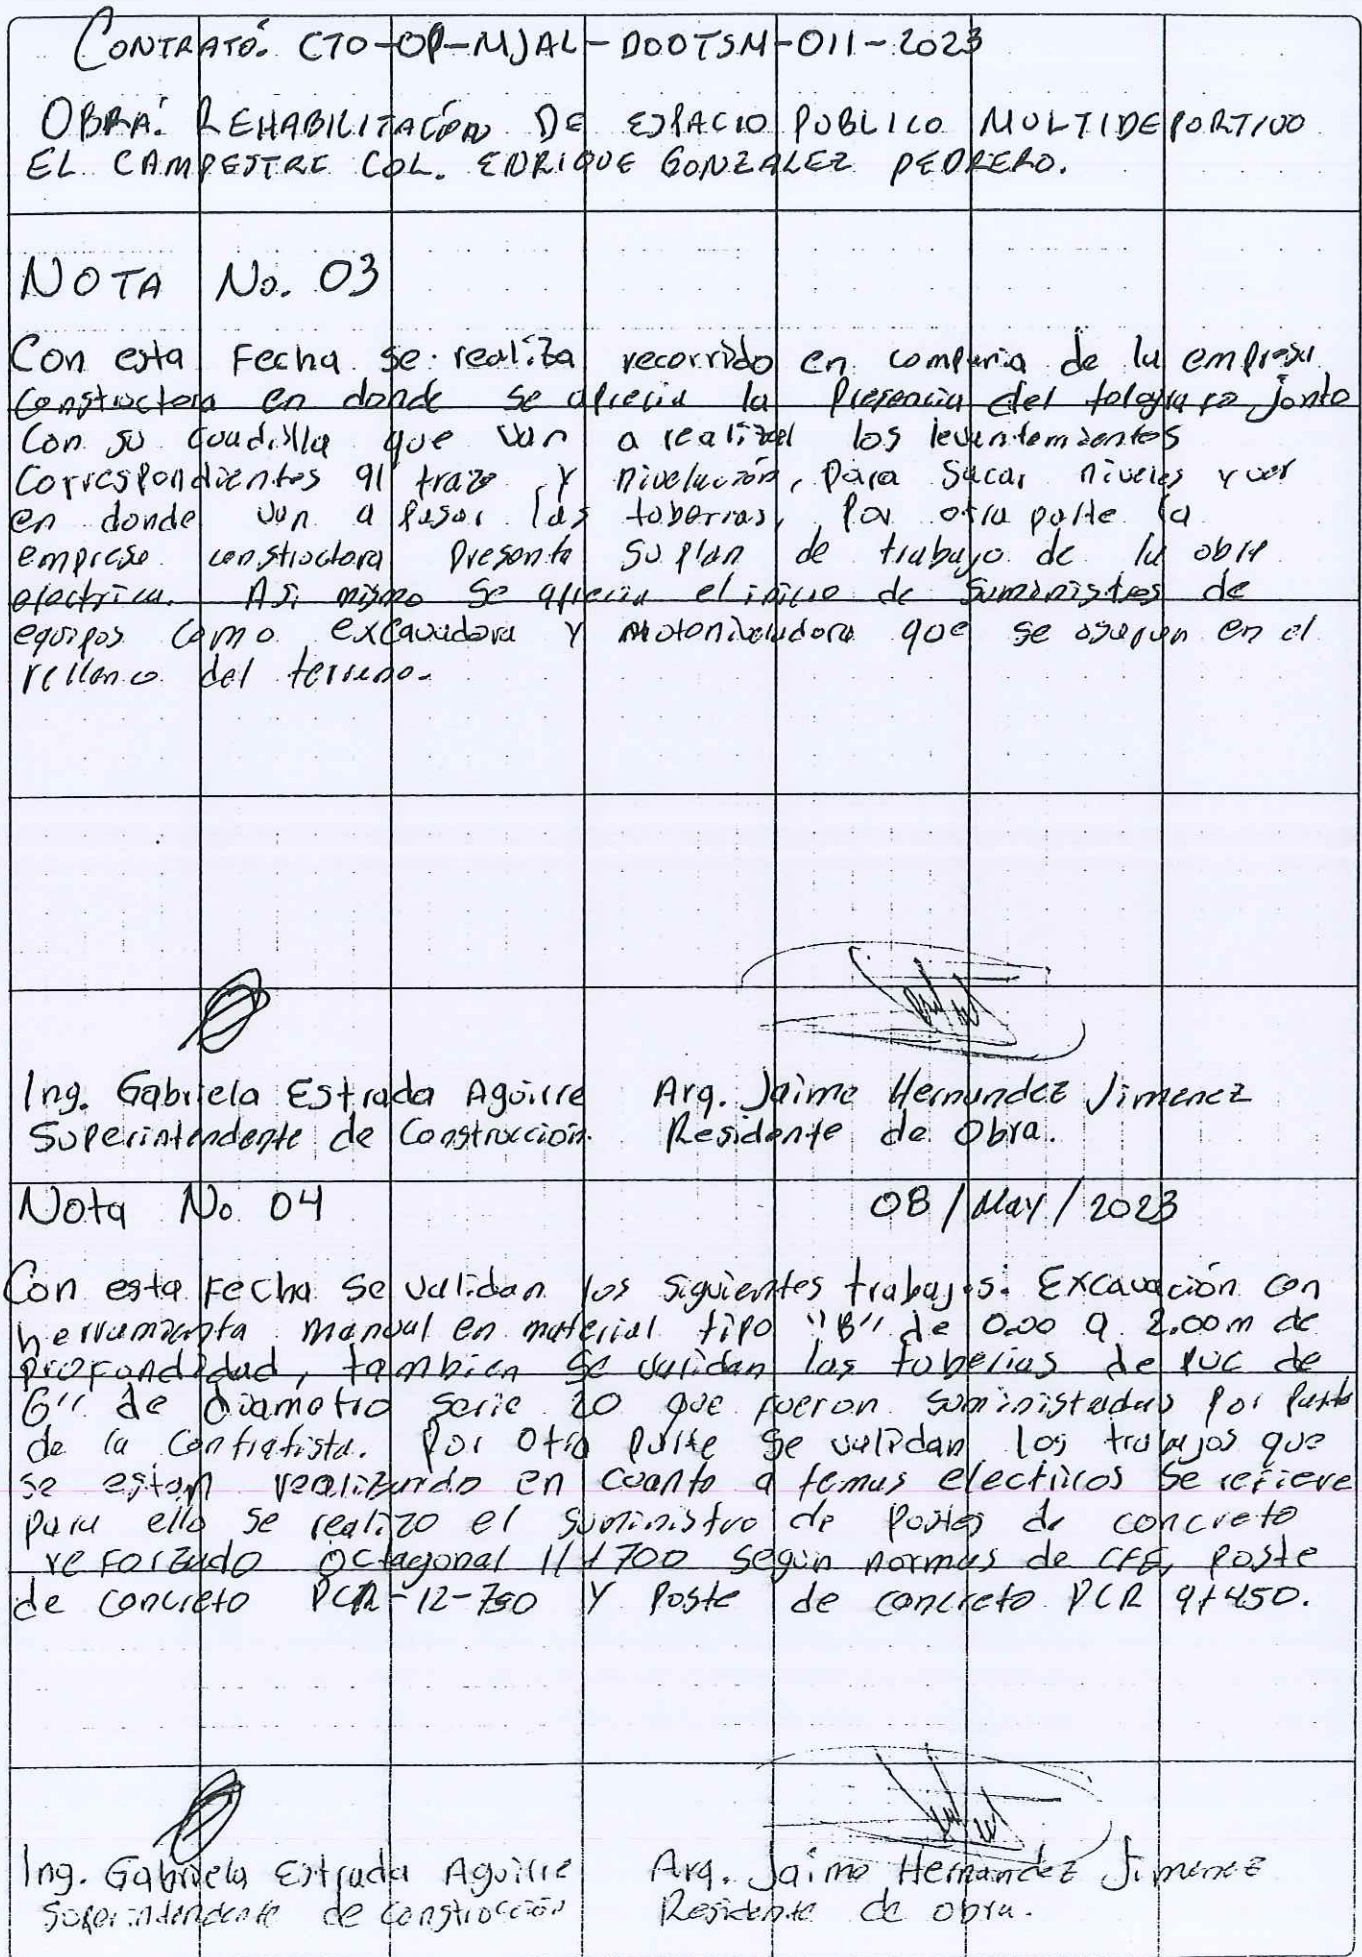 CONTRATO: CTO-OP-MJAL-DOOTSM-011-2023
OBRA: REHABILITACIÓN DE ESPACIO PUBLICO MULTIDEPORTIVO
EL CAMPESTRE COL. ENRIQUE GONZALEZ PEDRERO.
NOTA No. 03
Con esta Fecha se realiza recorrido en compañia de la empresa
Constructora en donde se aprecia la Presencia del topografo junto
Con su cuadrilla que van a realizar los levantamientos
Correspondientes al trazo y nivelación, para sacar niveles y ver
en donde van a pasar las tuberias, Por otra parte la
empresa constructora Presenta su plan de trabajo de la obra
electrica. Asi mismo se aprecia el inicio de suministros de
equipos como excavadora y motoniveladora que se usaran en el
relleno del terreno.
Ing. Gabriela Estrada Aguirre Arq. Jaime Hernandez Jimenez
Superintendente de Construccion. Residente de Obra.
Nota No. 04 08/May/2023
Con esta Fecha se validan los siguientes trabajos: Excavación con
herramienta manual en material tipo "B" de 0.00 a 2.00 m de
profundidad, tambien se validan las tuberias de PVC de
6" de diametro serie 20 que fueron suministradas Por Parte
de la Contratista. Por Otra Parte se validan los trabajos que
se estan realizando en cuanto a temas electricos se refiere
para ello se realizo el suministro de postes de concreto
reforzado octagonal 11+700 según normas de CFE, Poste
de concreto PCR-12-750 Y Poste de concreto PCR 9+450.
Ing. Gabriela Estrada Aguirre Arq. Jaime Hernandez Jimenez
Superintendente de Construcción Residente de obra.